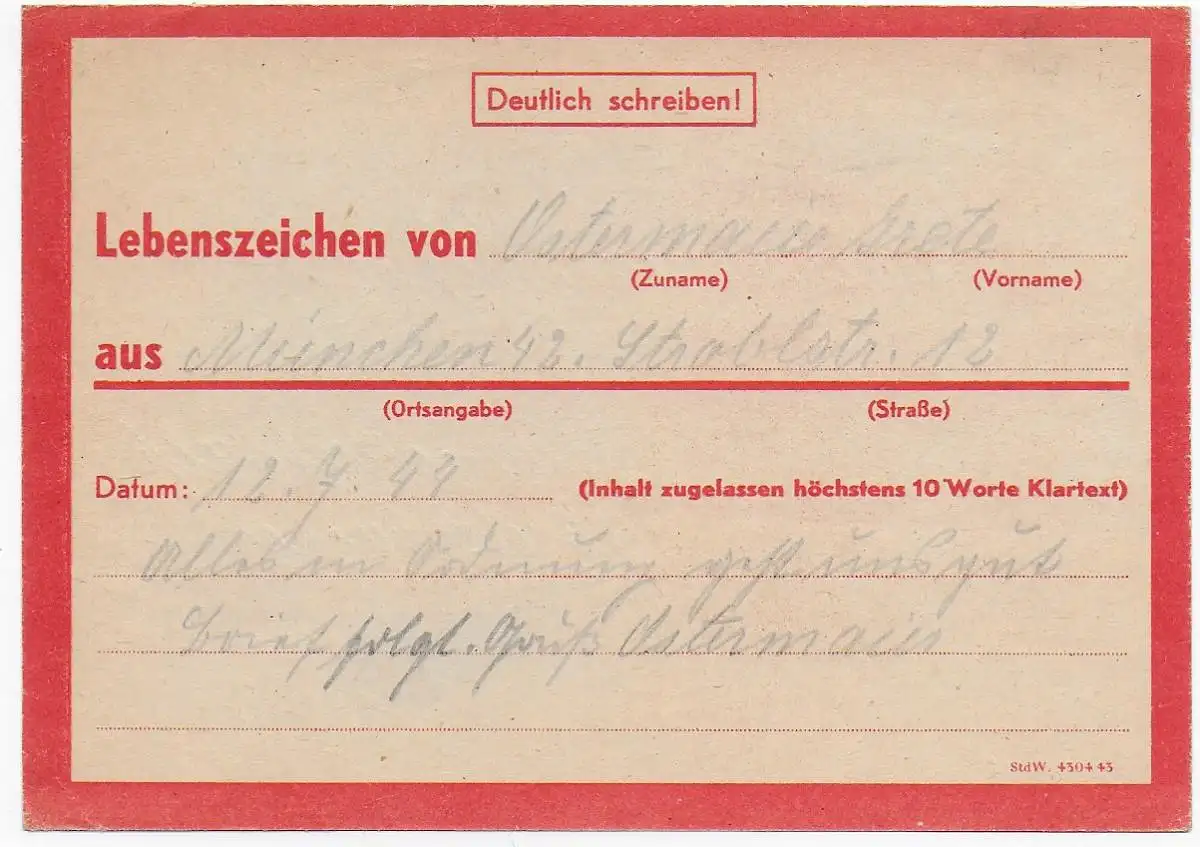 Deutlich schreiben!
Lebenszeichen von Ostermaier Grete
(Zuname) (Vorname)
aus München 42. Stroblstr. 12
(Ortsangabe) (Straße)
Datum: 12.7.44 (Inhalt zugelassen höchstens 10 Worte Klartext)
Alles in Ordnung geht uns gut
Brief folgt. Gruß Ostermaier
StdW. 4304 43